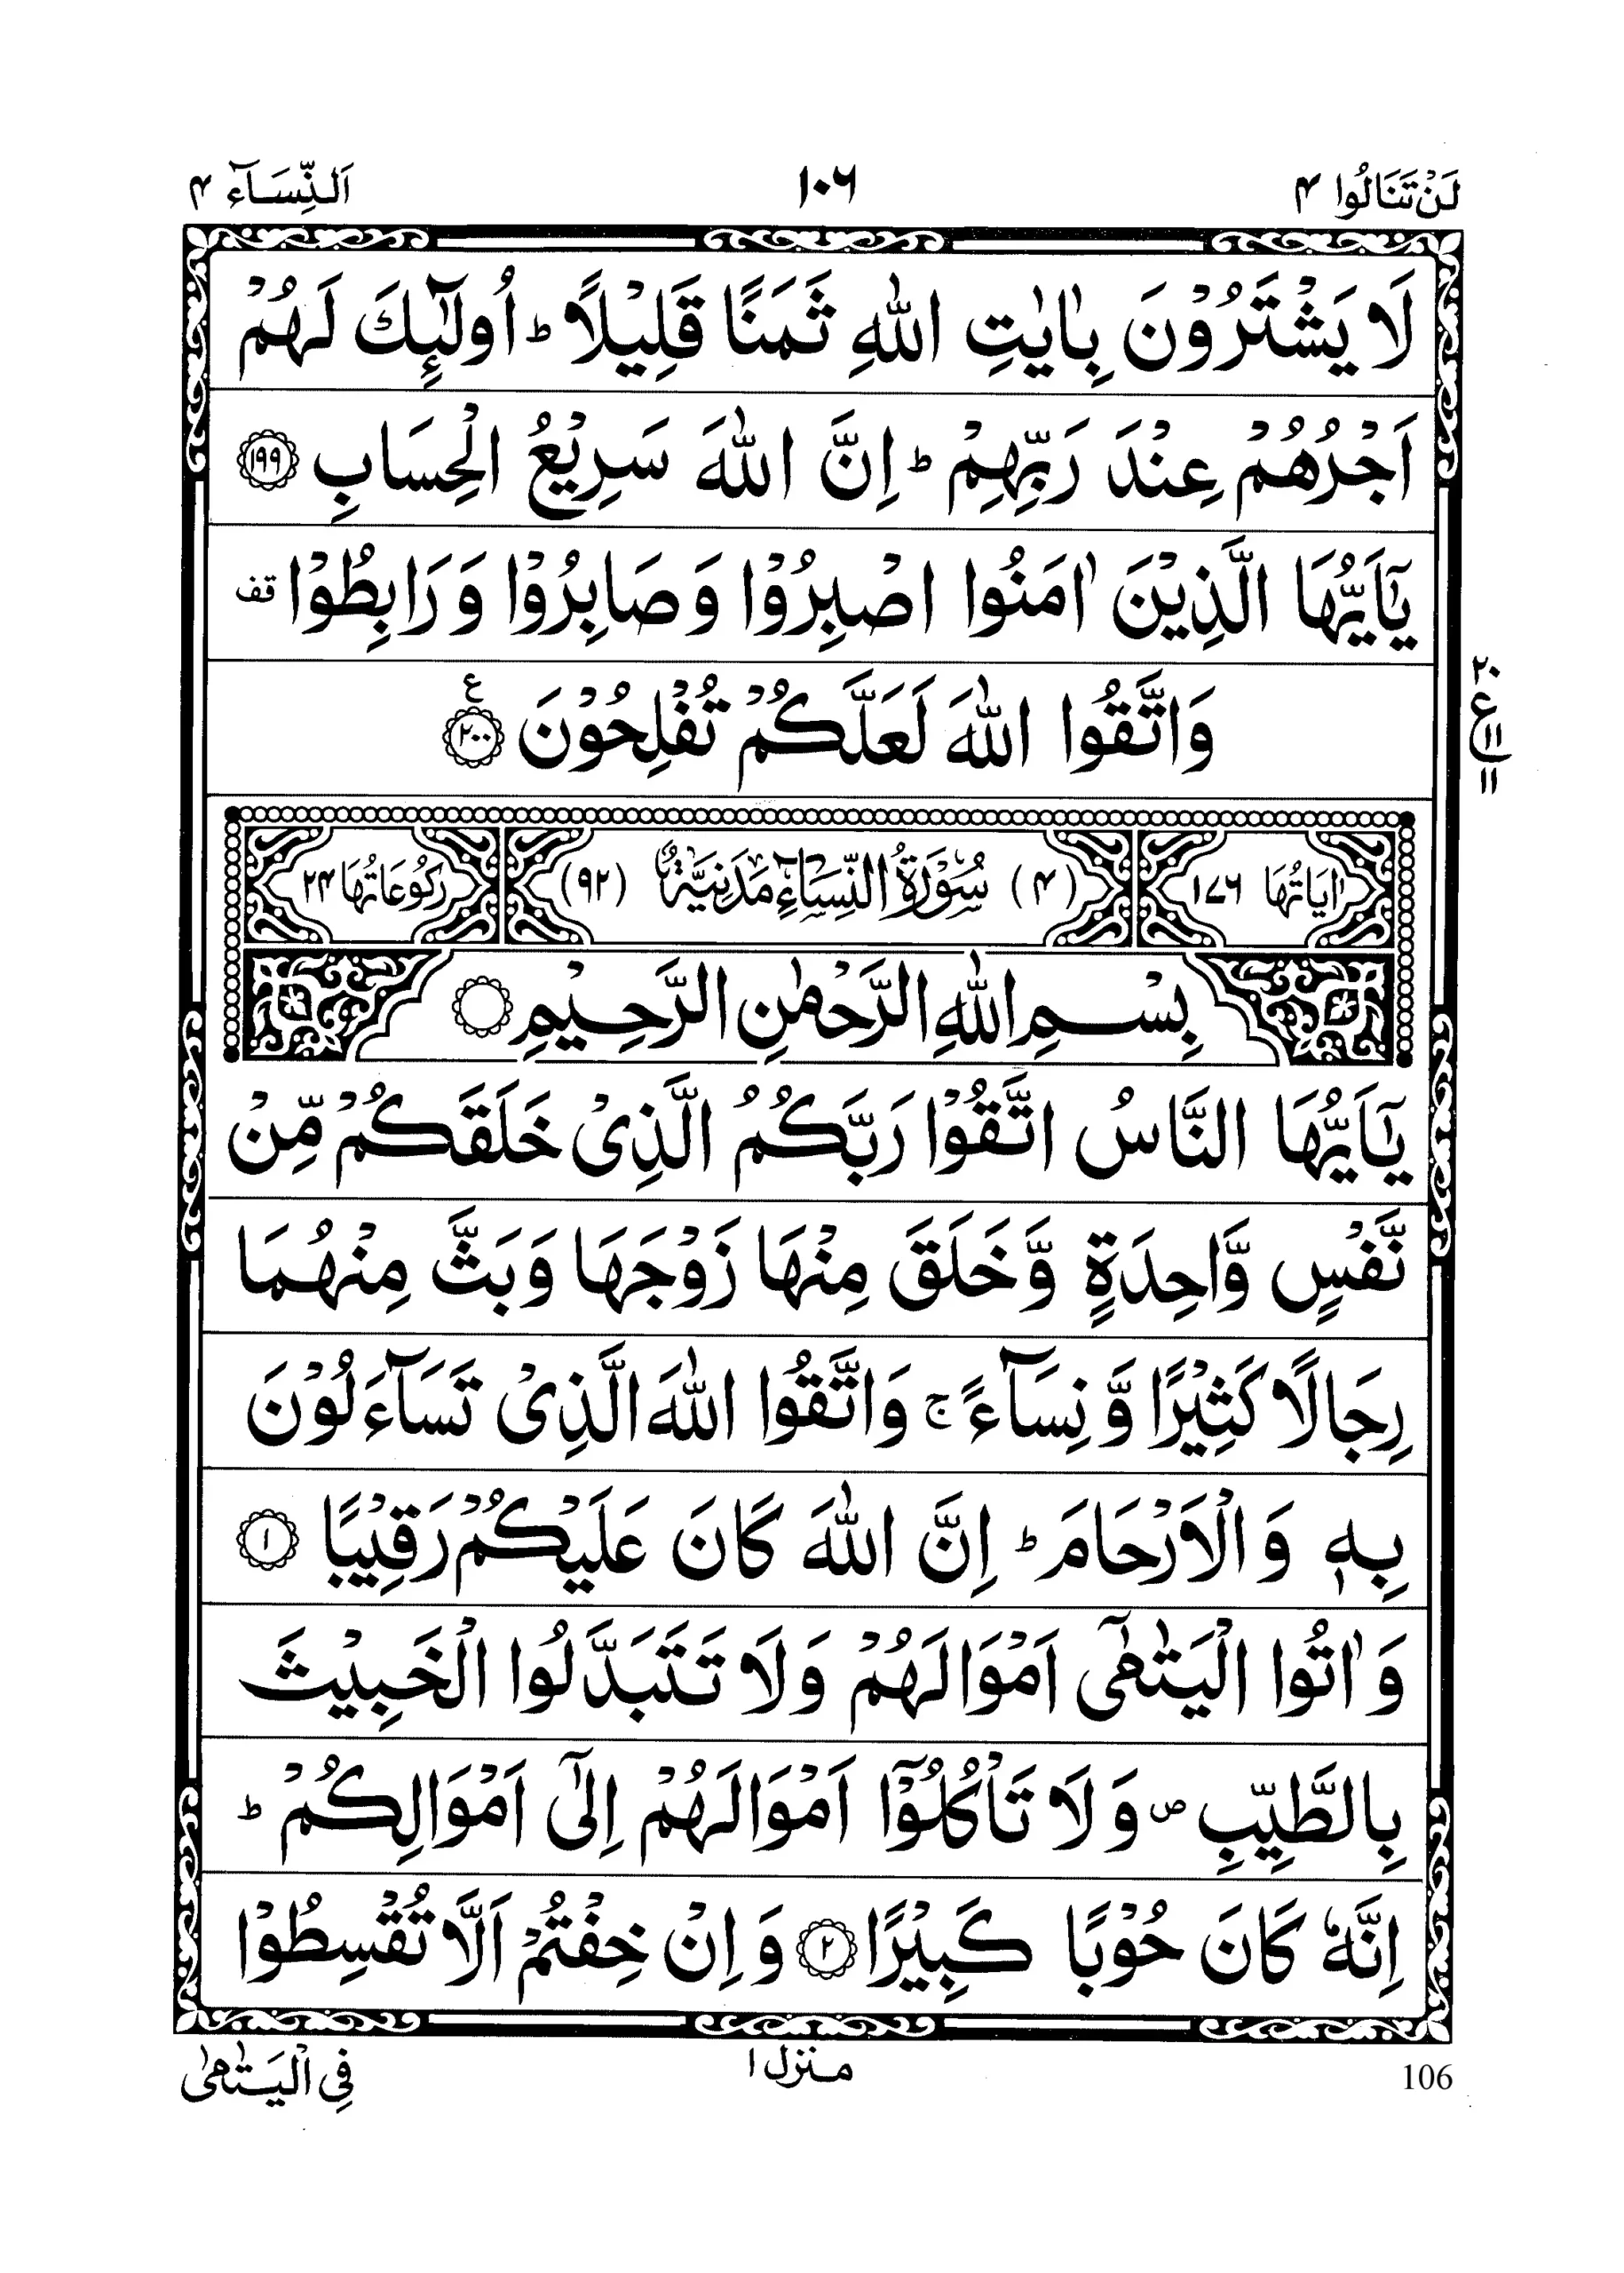 لَنْ تَنَالُوا ۴
۱۰۶
اَلنِّسَآء ۴
لَا يَشْتَرُوْنَ بِاٰيٰتِ اللّٰهِ ثَمَنًا قَلِيْلًا ؕ اُولٰٓئِكَ لَهُمْ
اَجْرُهُمْ عِنْدَ رَبِّهِمْ ؕ اِنَّ اللّٰهَ سَرِيْعُ الْحِسَابِ ۱۹۹
يٰۤاَيُّهَا الَّذِيْنَ اٰمَنُوا اصْبِرُوْا وَصَابِرُوْا وَرَابِطُوْا قف
وَاتَّقُوا اللّٰهَ لَعَلَّكُمْ تُفْلِحُوْنَ ع ۲۰۰
۲۰
ع
۱۱
۱۱
اٰيَاتُهَا ۱۷۶
(۴) سُوْرَةُ النِّسَآءِ مَدَنِيَّةٌ (۹۲)
رُكُوْعَاتُهَا ۲۴
بِسْمِ اللّٰهِ الرَّحْمٰنِ الرَّحِيْمِ
يٰۤاَيُّهَا النَّاسُ اتَّقُوْا رَبَّكُمُ الَّذِىْ خَلَقَكُمْ مِّنْ
نَّفْسٍ وَّاحِدَةٍ وَّخَلَقَ مِنْهَا زَوْجَهَا وَبَثَّ مِنْهُمَا
رِجَالًا كَثِيْرًا وَّنِسَآءً ۚ وَاتَّقُوا اللّٰهَ الَّذِىْ تَسَآءَلُوْنَ
بِهٖ وَالْاَرْحَامَ ؕ اِنَّ اللّٰهَ كَانَ عَلَيْكُمْ رَقِيْبًا ۱
وَاٰتُوا الْيَتٰمٰٓى اَمْوَالَهُمْ وَلَا تَتَبَدَّلُوا الْخَبِيْثَ
بِالطَّيِّبِ ۖ وَلَا تَاْكُلُوْۤا اَمْوَالَهُمْ اِلٰٓى اَمْوَالِكُمْ ؕ
اِنَّهٗ كَانَ حُوْبًا كَبِيْرًا ۲ وَاِنْ خِفْتُمْ اَلَّا تُقْسِطُوْا
فِى الْيَتٰمٰى
منزل ۱
106